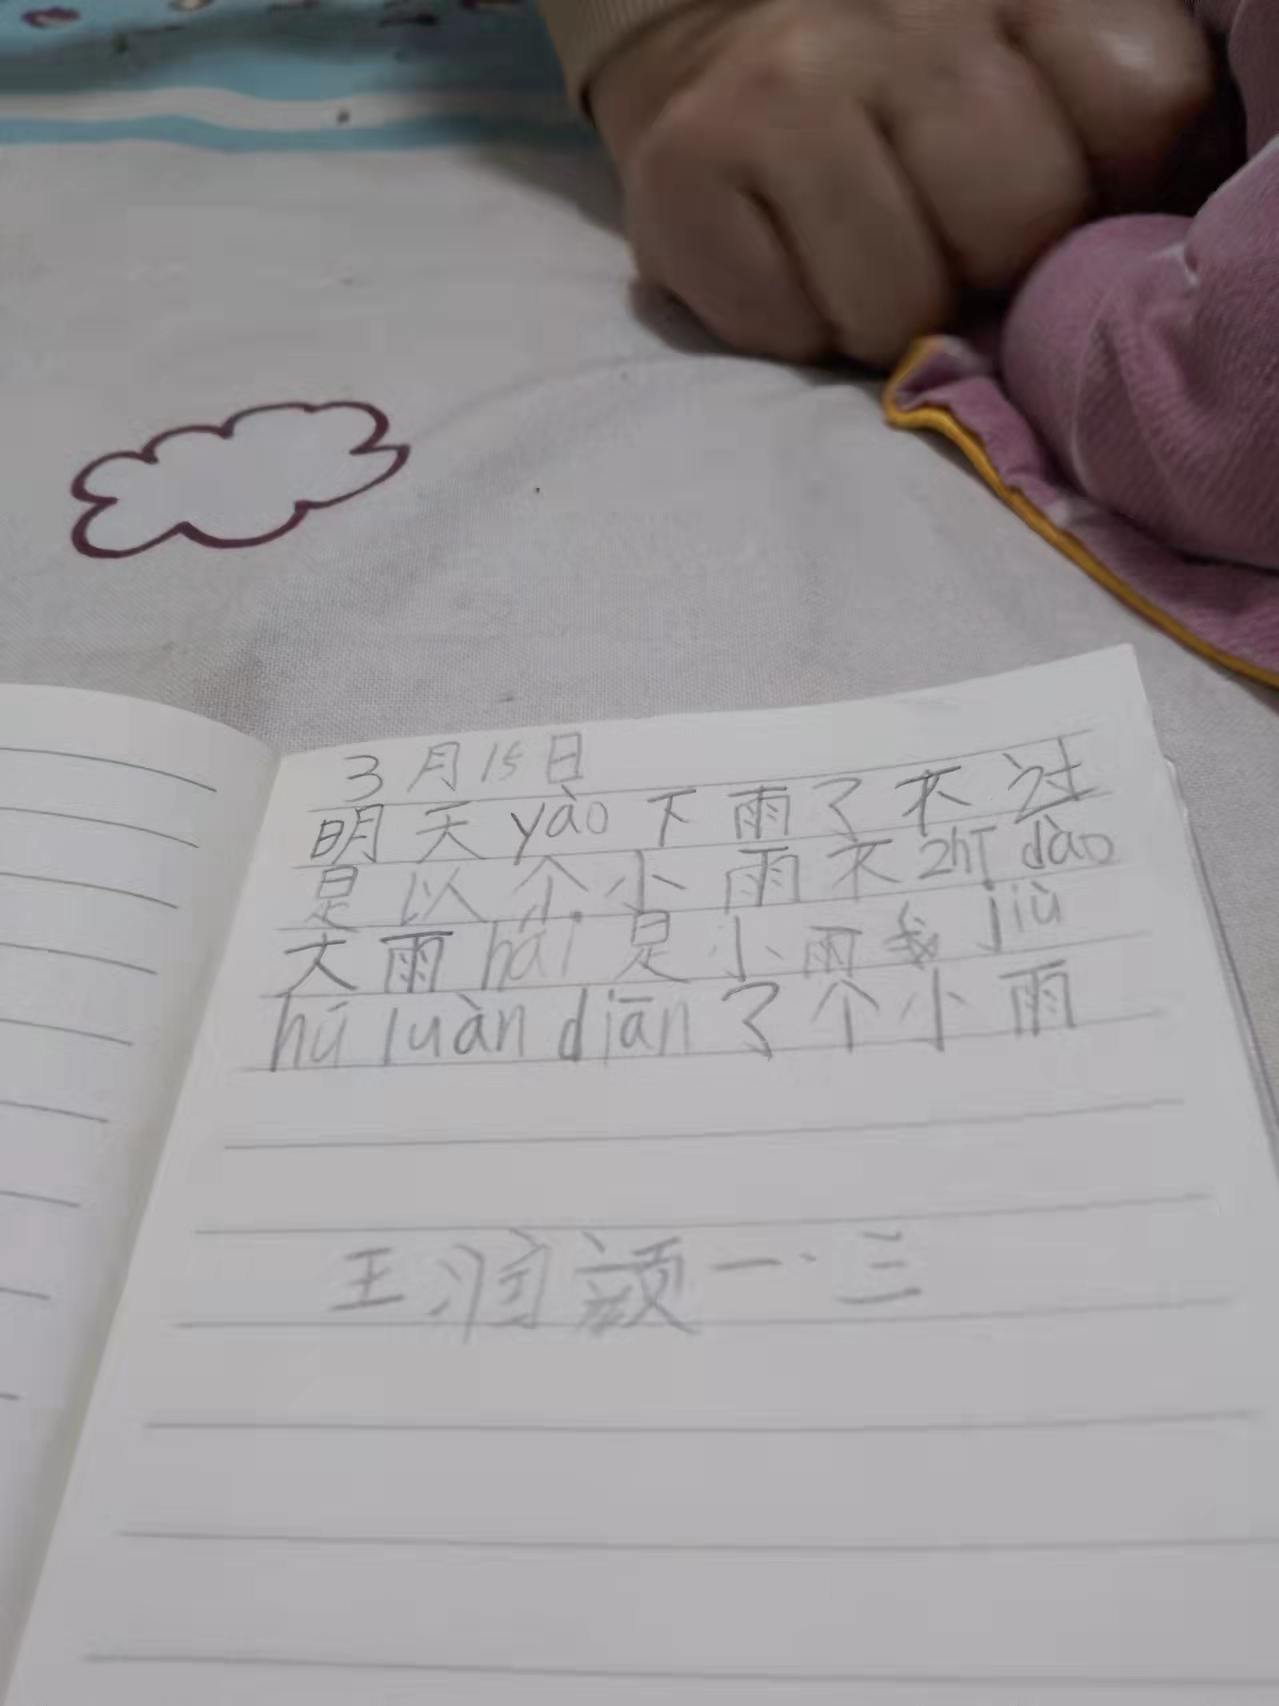 3月15日
明天yào下雨了不过
是以个小雨不zhī dào
大雨hái是小雨我jiù
hú luàn diǎn了个小雨
王润颜一·三